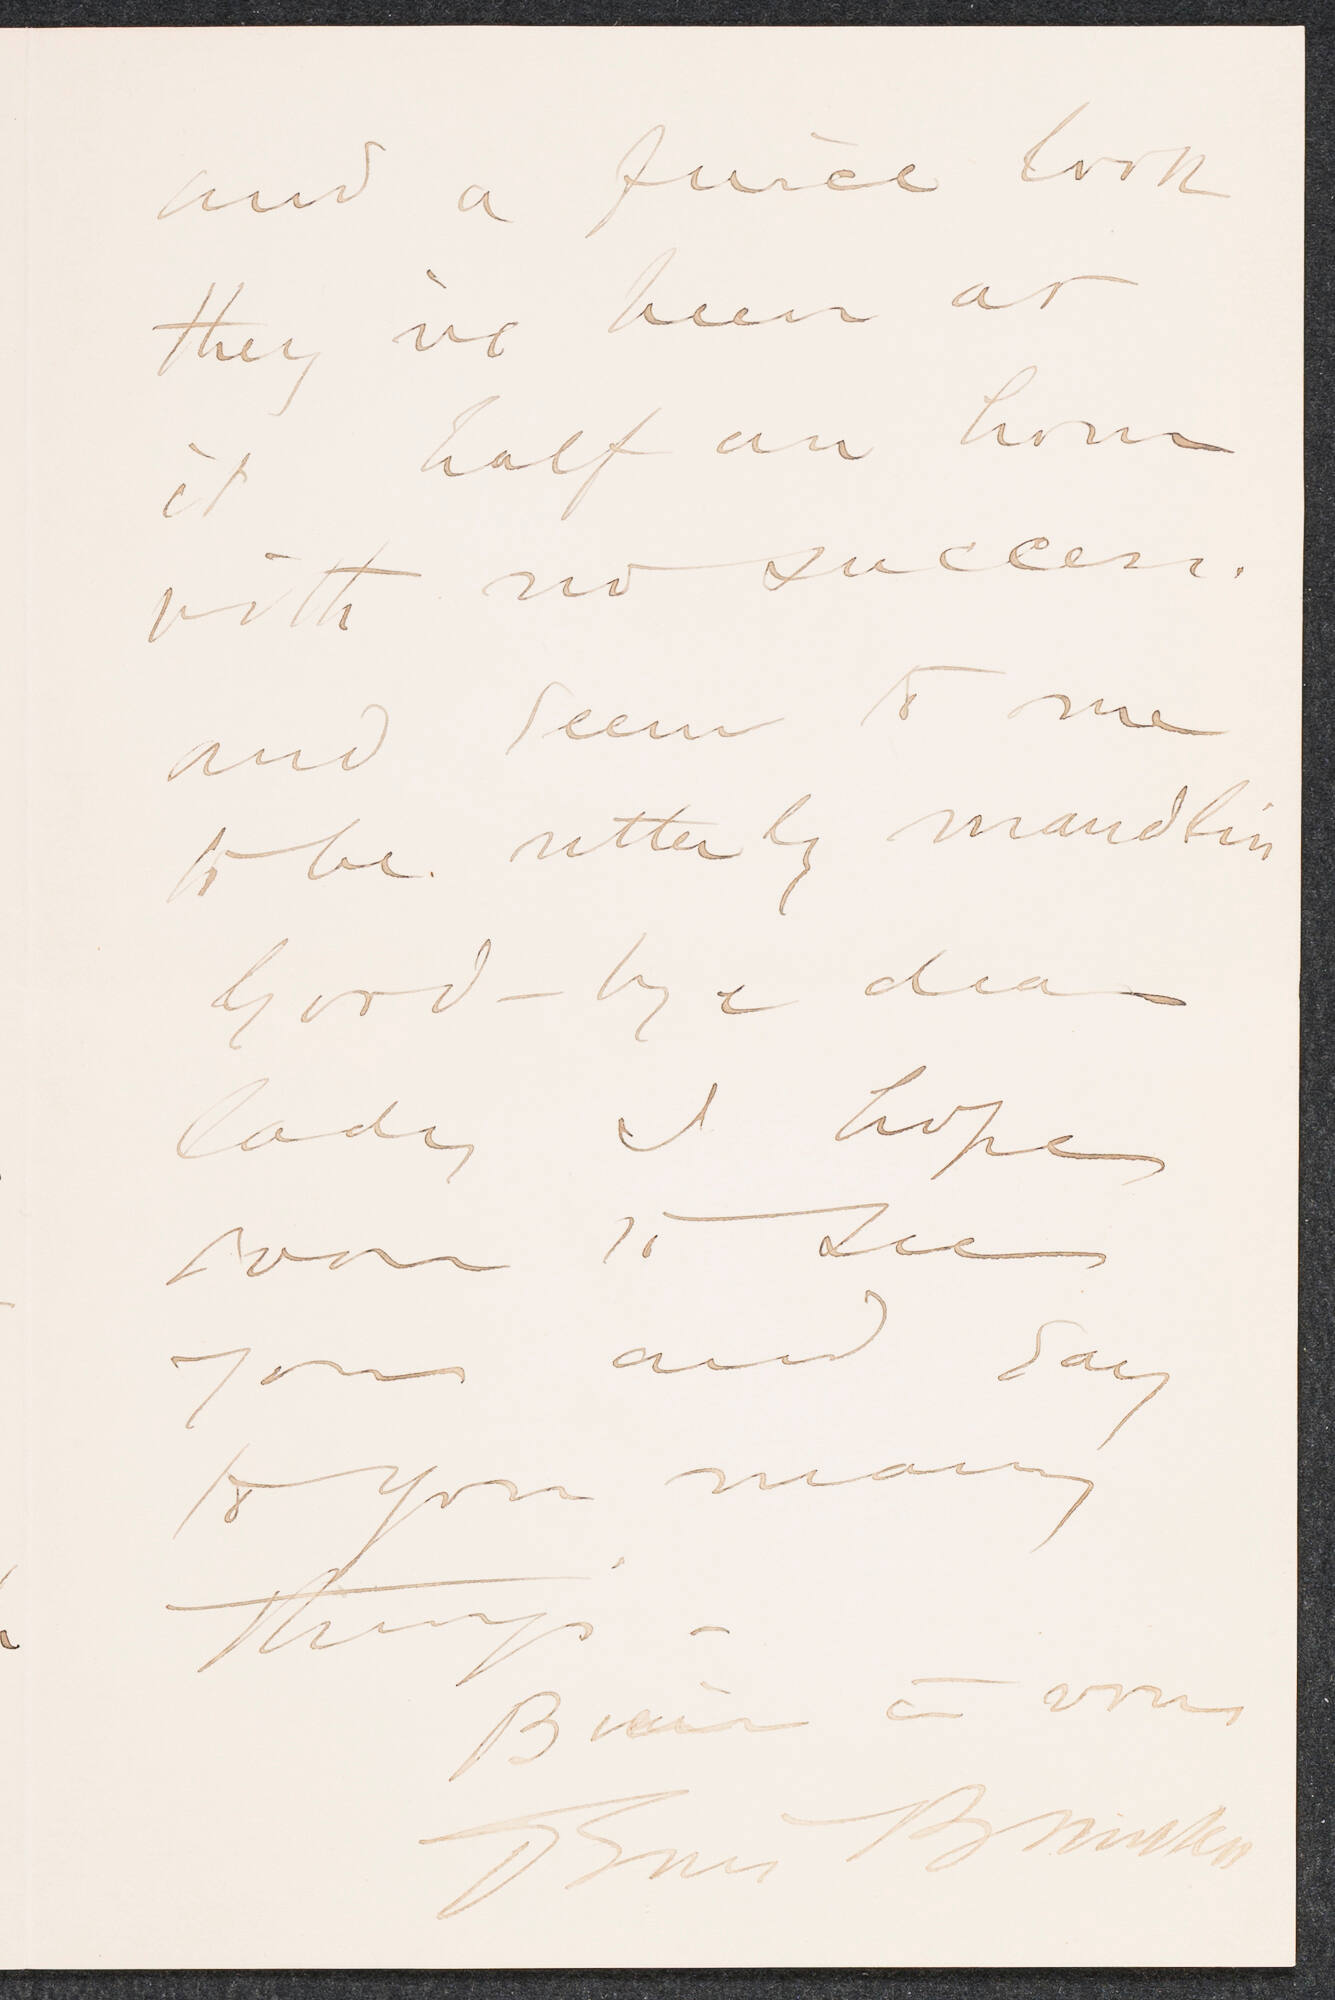 and a fierce look
they've been at
it half an hour
with no success.
and seem to me
to be utterly maudlin
Good-bye dear
lady I hope
soon to see
you and say
to you many
things –
Bien à vous